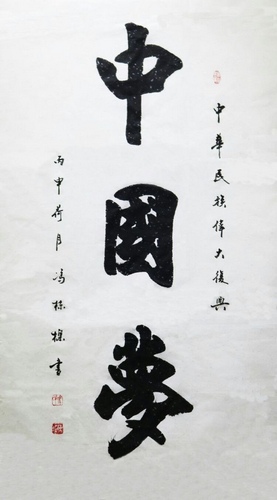 中華民族偉大復興
中國夢
丙申荷月馮栋樑書